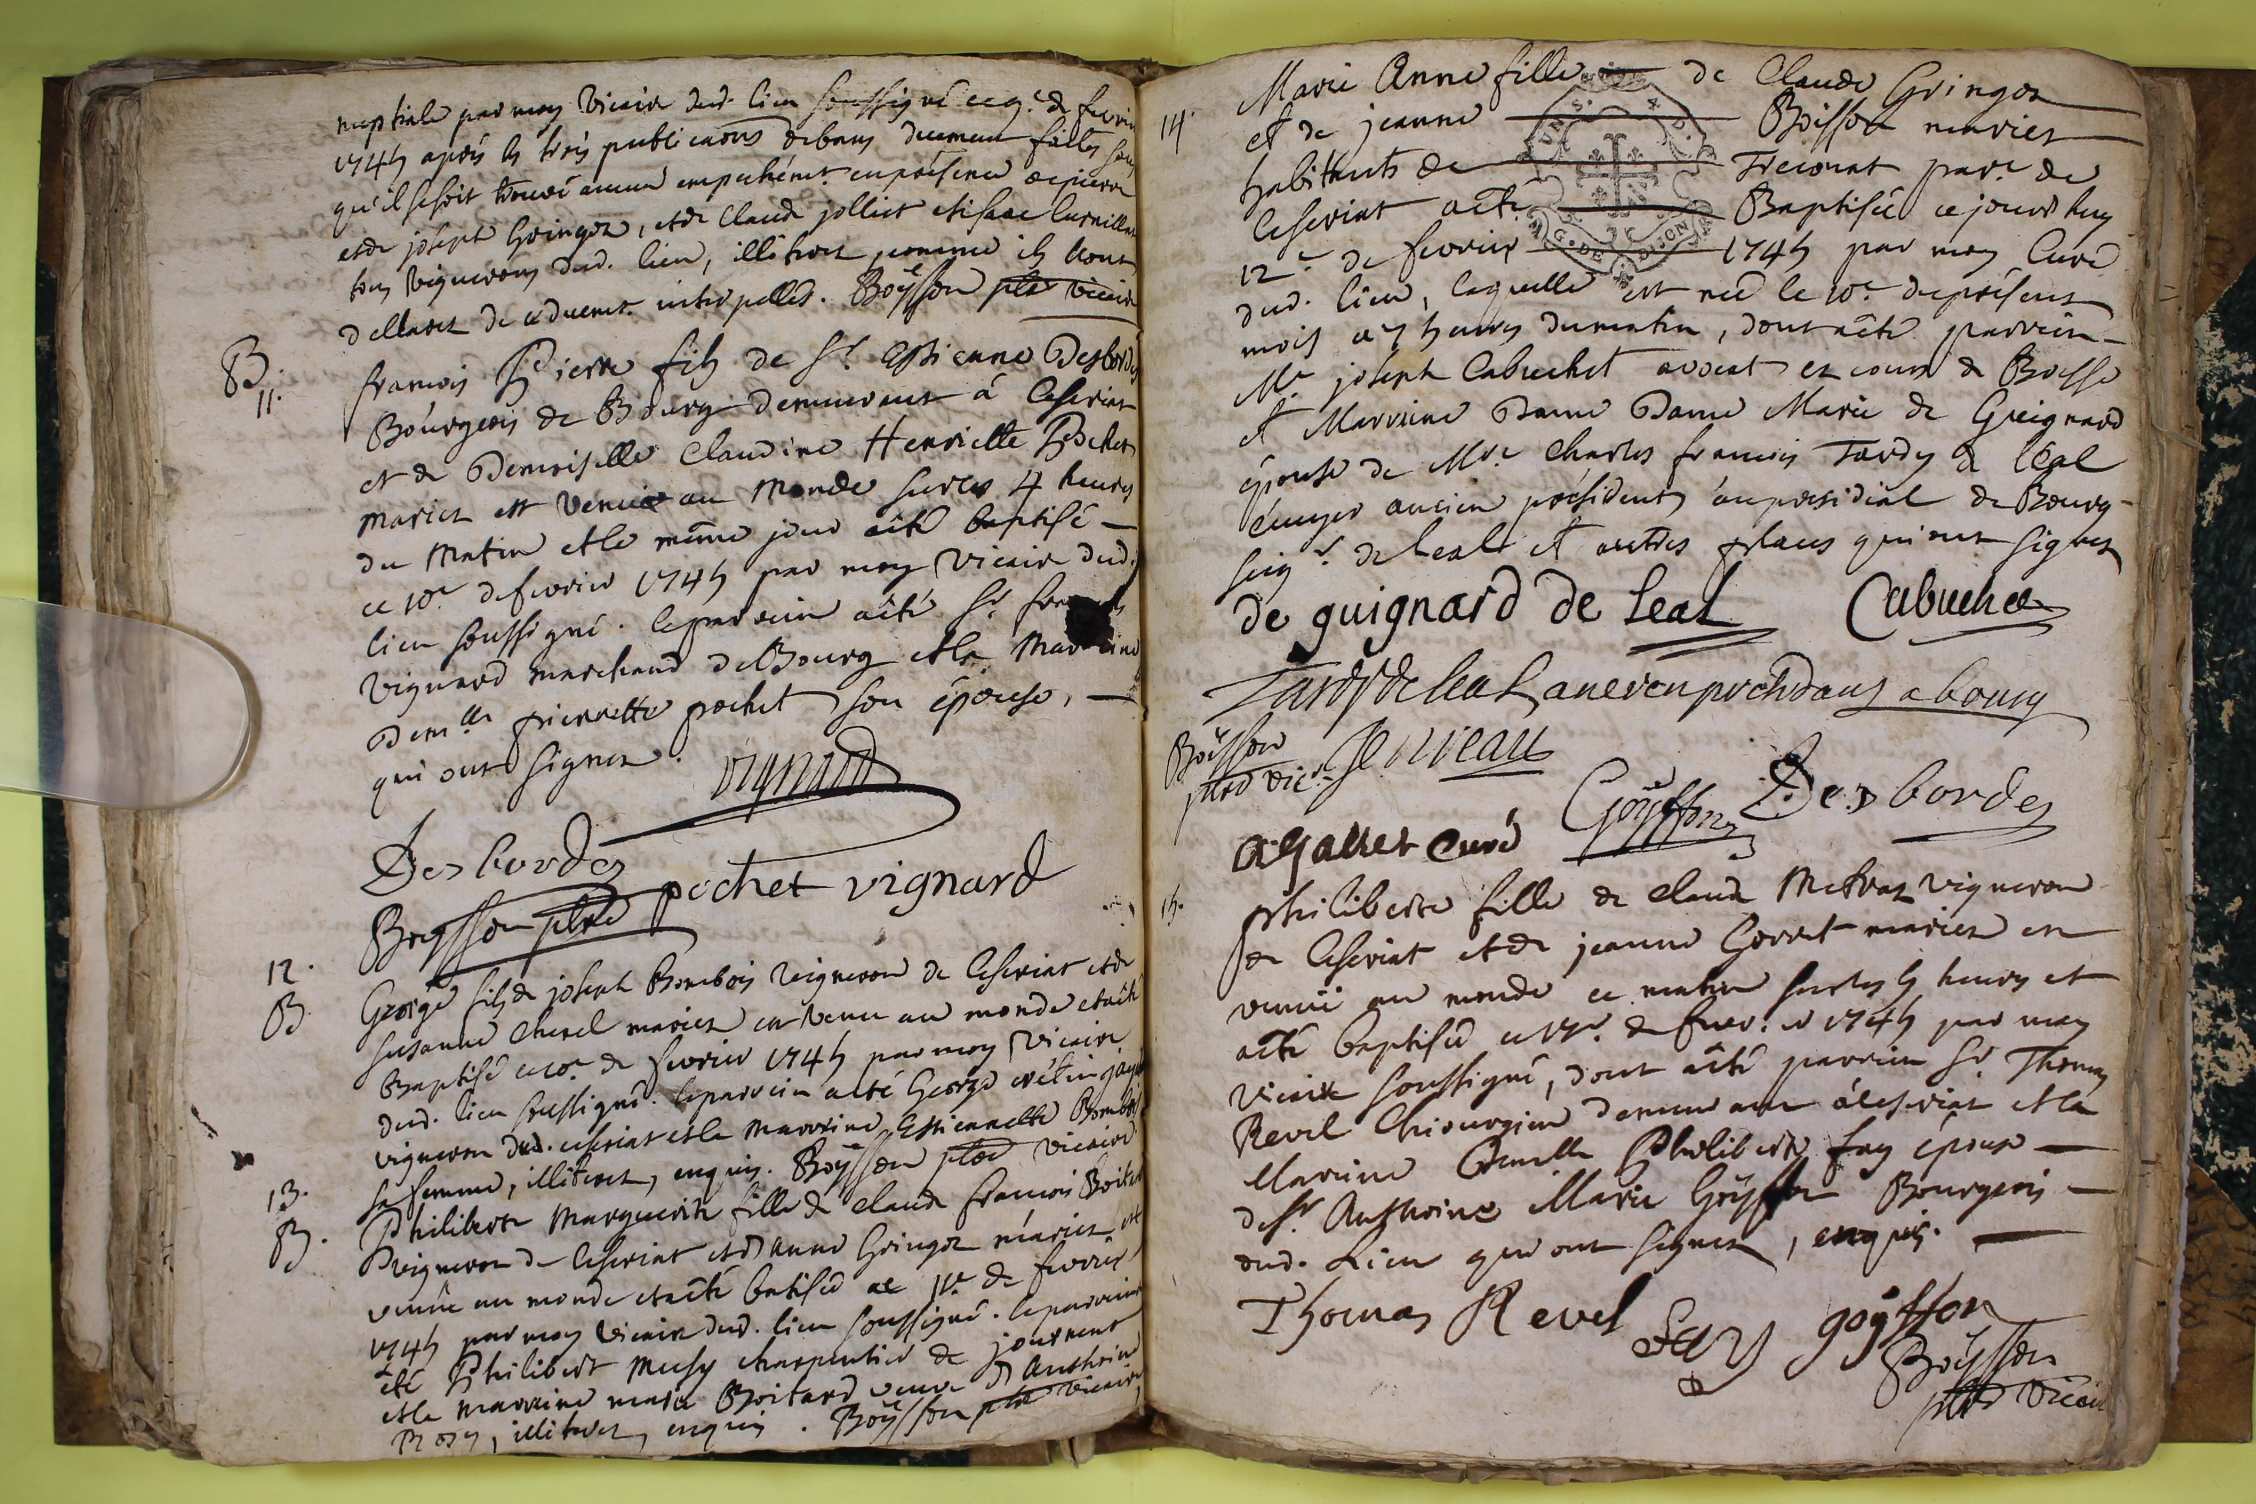 nuptiale par moy vicaire dud. lieu soussigné ce 9.e de fevrier
1745 apres les trois publications de bans duement faites sans
qu'il se soit trouvé aucun empechem.t en présence de pierre
et de joseph Gringoz, et de Claude jolliet et isaac
tous vignerons dud. lieu, illitérés, comme ils l'ont
declarez de ce duemt. interpellés. Boÿsson ptre vicaire
B.
11.
francois Pierre fils de Sr. Estienne Desbordes
Bourgeois de Bourg demeurant à Ceseriat
et de Demoiselle Claudine Henriette Pochet
mariez est venu au monde sur les 4 heures
du matin et le même jour a eté baptisé
ce 10.e de fevrier 1745 par moy vicaire dud.
lieu soussigné. le parrein a eté Sr. francois
vignard marchand de Bourg et la Marraine
Dem.lle pierrette pochet son épouse,
qui ont signez.
vignard
Desbordes
pochet vignard
Boysson ptre
12.
B
George fils de joseph Bombois vigneron de Ceseriat et de
susanne Churel mariez est venu au monde et a eté
Baptisé ce 10.e de fevrier 1745 par moy vicaire
dud. lieu soussigné. le parrein a eté George
vigneron dud. ceseriat et la marraine Estiennette Bombois
sa femme, illiteres, enquis. Boÿsson ptre vicaire
13.
B.
Philiberte Marguerite fille de claude francois Boitard
vigneron de Ceseriat et d'anne Gringoz mariez est
venüe au monde et a eté batisée ce 11.e de fevrier
1745 par moy vicaire dud. lieu soussigné. le parrein a
été Philibert musy charpentier de journent
et la marraine marie Boitard veuve d'Anthoine
Rosy, illiteres, enquis. Boÿsson ptre vicaire
14.
Marie Anne fille de Claude Gringoz
et de jeanne Boisson mariez
habitants de Treconat par.e de
Ceseriat a eté Baptisée ce jourd'huy
12.e de fevrier 1745 par moy Curé
dud. lieu, laquelle est née le 10.e du présent
mois a 7 heures du matin, dont a eté parrein
Mr. joseph Cabuchet avocat es cours de Bresse
et Marraine Dame Dame Marie de Guignard
épouse de Mre. Charles francois Tardy de Léal
écuyer ancien président au présidial de Bourg
seigr. de Leal et autres places qui ont signez
de guignard de Leal Cabuchet
Tardy de Leal ancien présidant a bourg
Boÿsson
ptre vic.
Goÿffon Desbordes
curé
15.
philiberte fille de claude Metras vigneron
de Ceseriat et de jeanne Gorret mariez est
venüe au monde ce matin sur les 5 heures et
a eté baptisée ce de fevrier 1745 par moy
vicaire soussigné, dont a eté parrein Sr. Thomas
Revel Chirurgien demeurant à Ceseriat et la
Marraine Philiberte Fay épouse
de Sr. Anthoine Marie Goÿffon Bourgeois
dud. Lieu qui ont signez, enquis.
Thomas Revel Fay goÿffon
Boÿsson
ptre vicaire